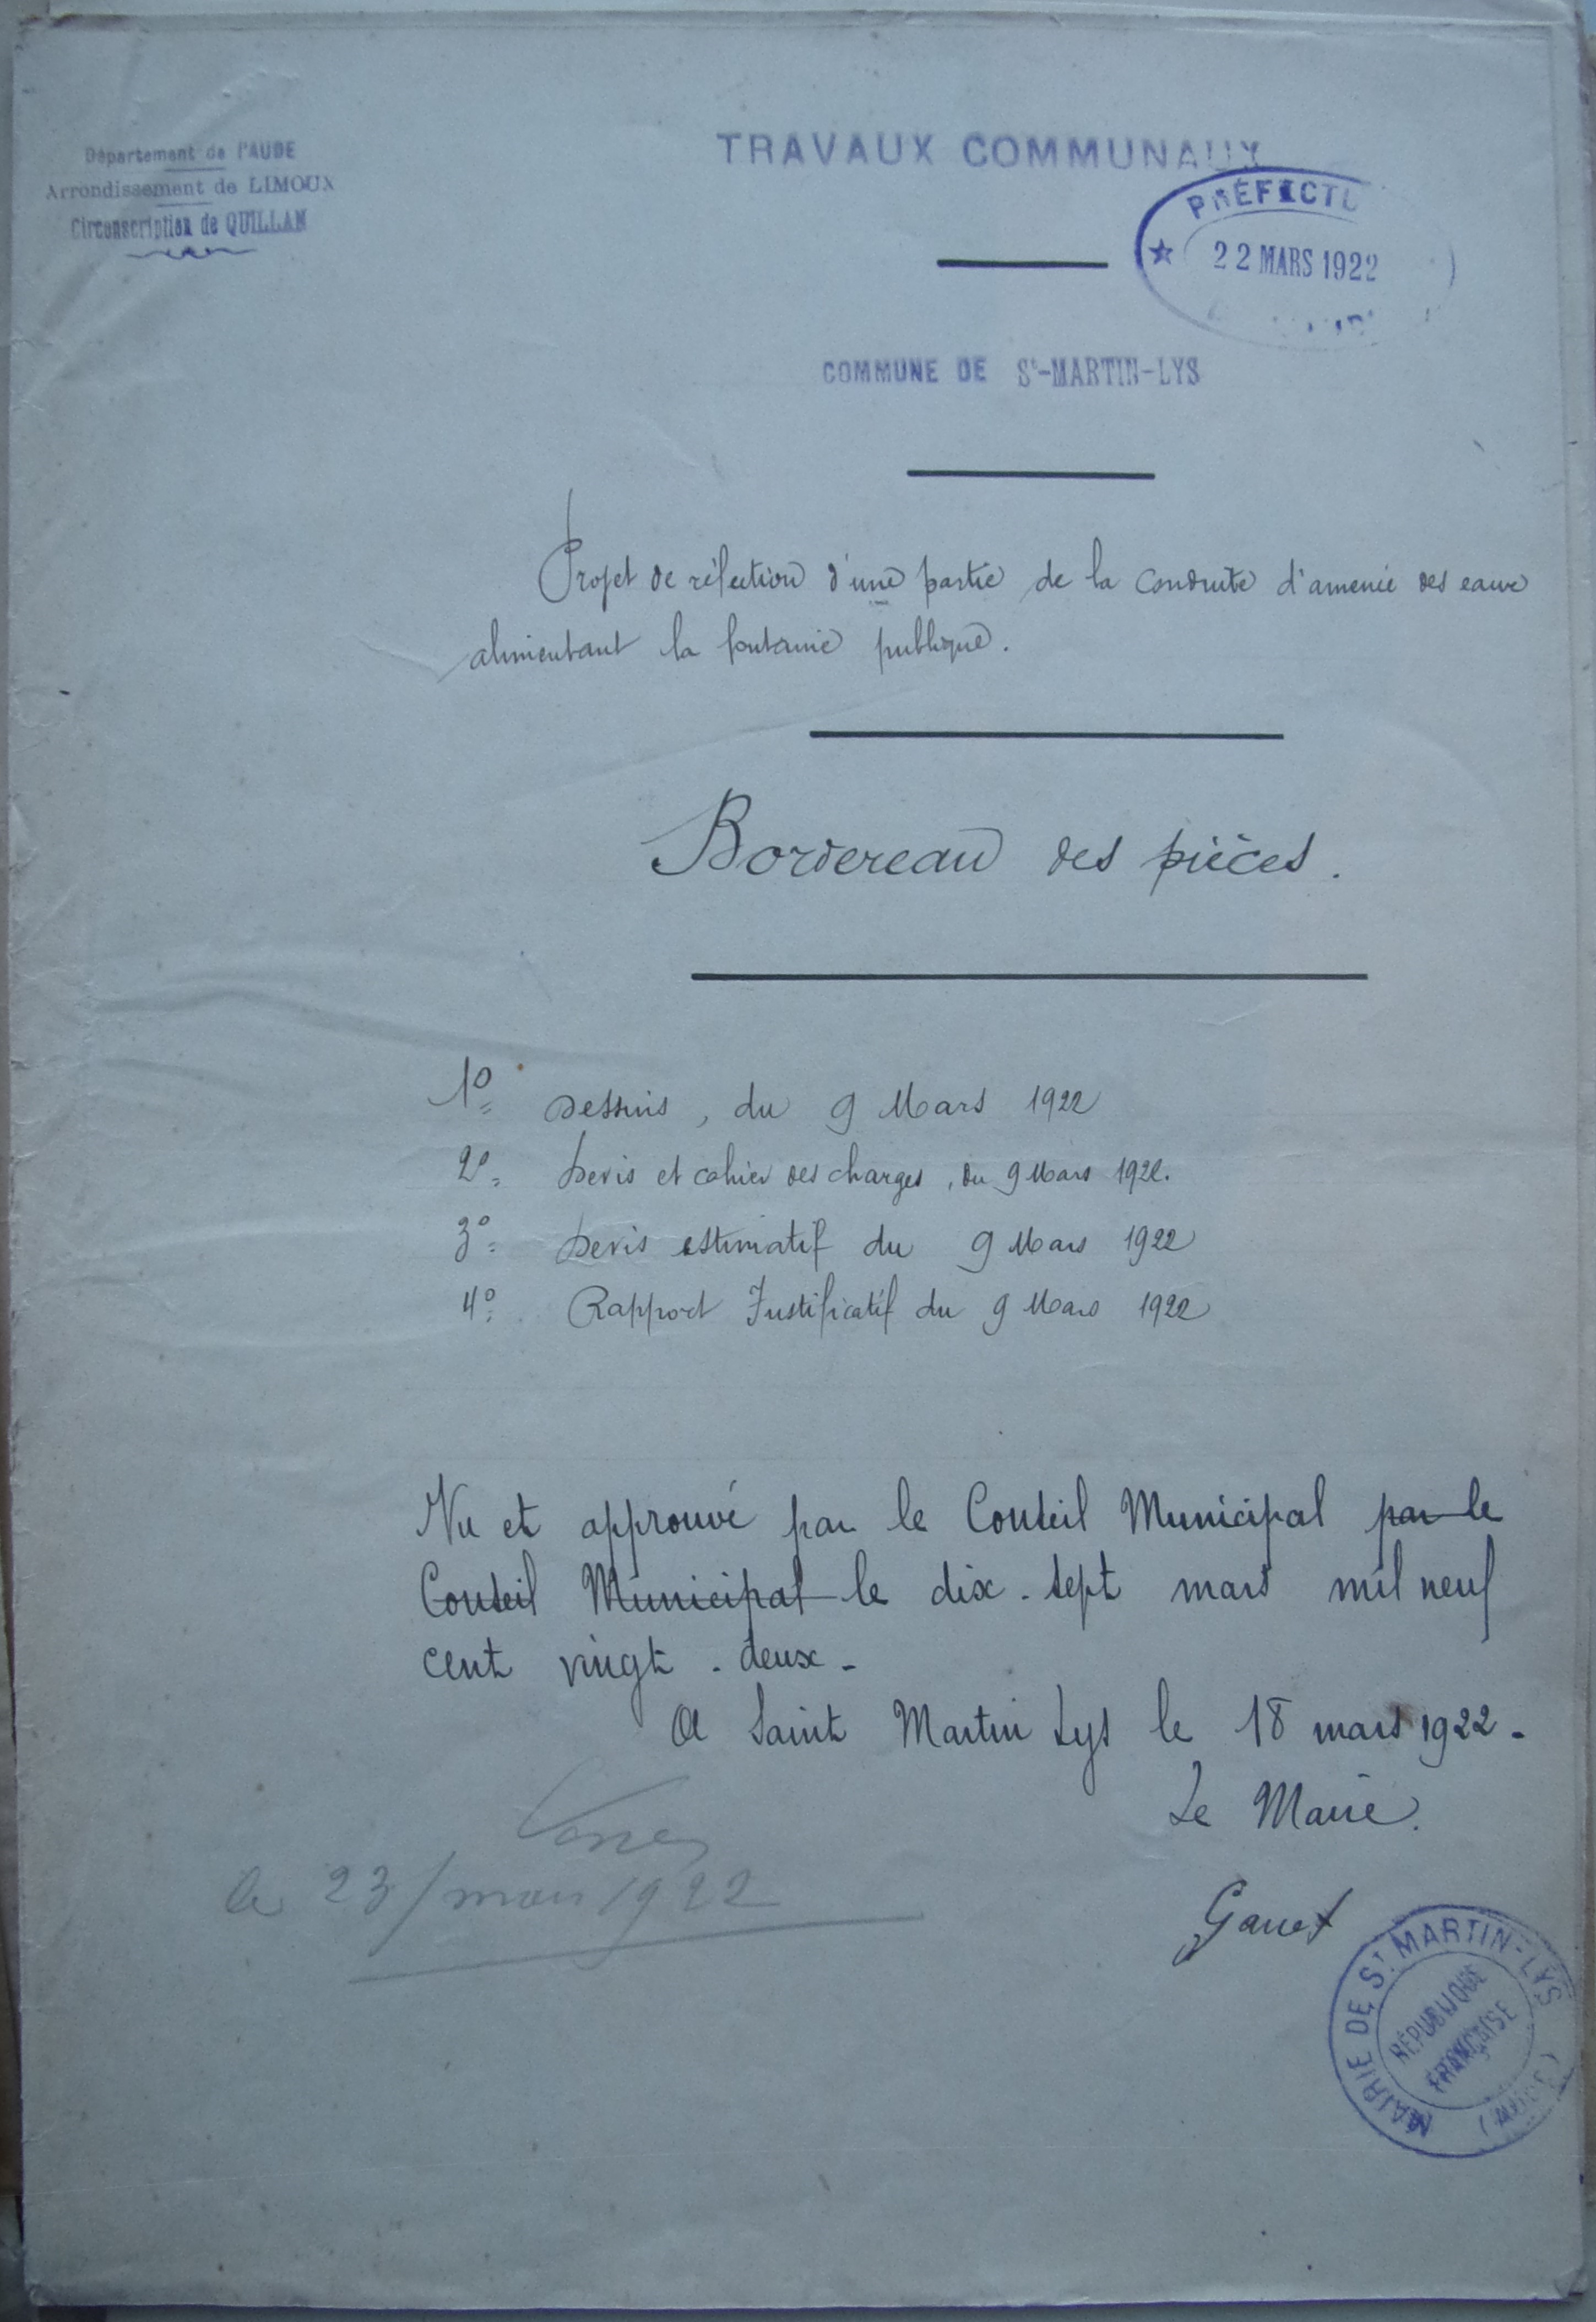 Département de l'AUDE
Arrondissement de LIMOUX
Circonscription de QUILLAN
TRAVAUX COMMUNAUX
PRÉFECTU
22 MARS 1922
COMMUNE DE St-MARTIN-LYS
Projet de réfection d'une partie de la conduite d'amenée des eaux
alimentant la fontaine publique.
Bordereau des pièces.
1º Dessins, du 9 Mars 1922
2º Devis et cahier des charges, du 9 Mars 1922.
3º Devis estimatif du 9 Mars 1922
4º Rapport Justificatif du 9 Mars 1922
Vu et approuvé par le Conseil Municipal par le
Conseil Municipal le dix-sept mars mil neuf
cent vingt-deux-
A Saint Martin Lys le 18 mars 1922-
Le Maire.
23/mars 1922
MAIRIE DE St MARTIN-LYS (AUDE)
RÉPUBLIQUE
FRANÇAISE